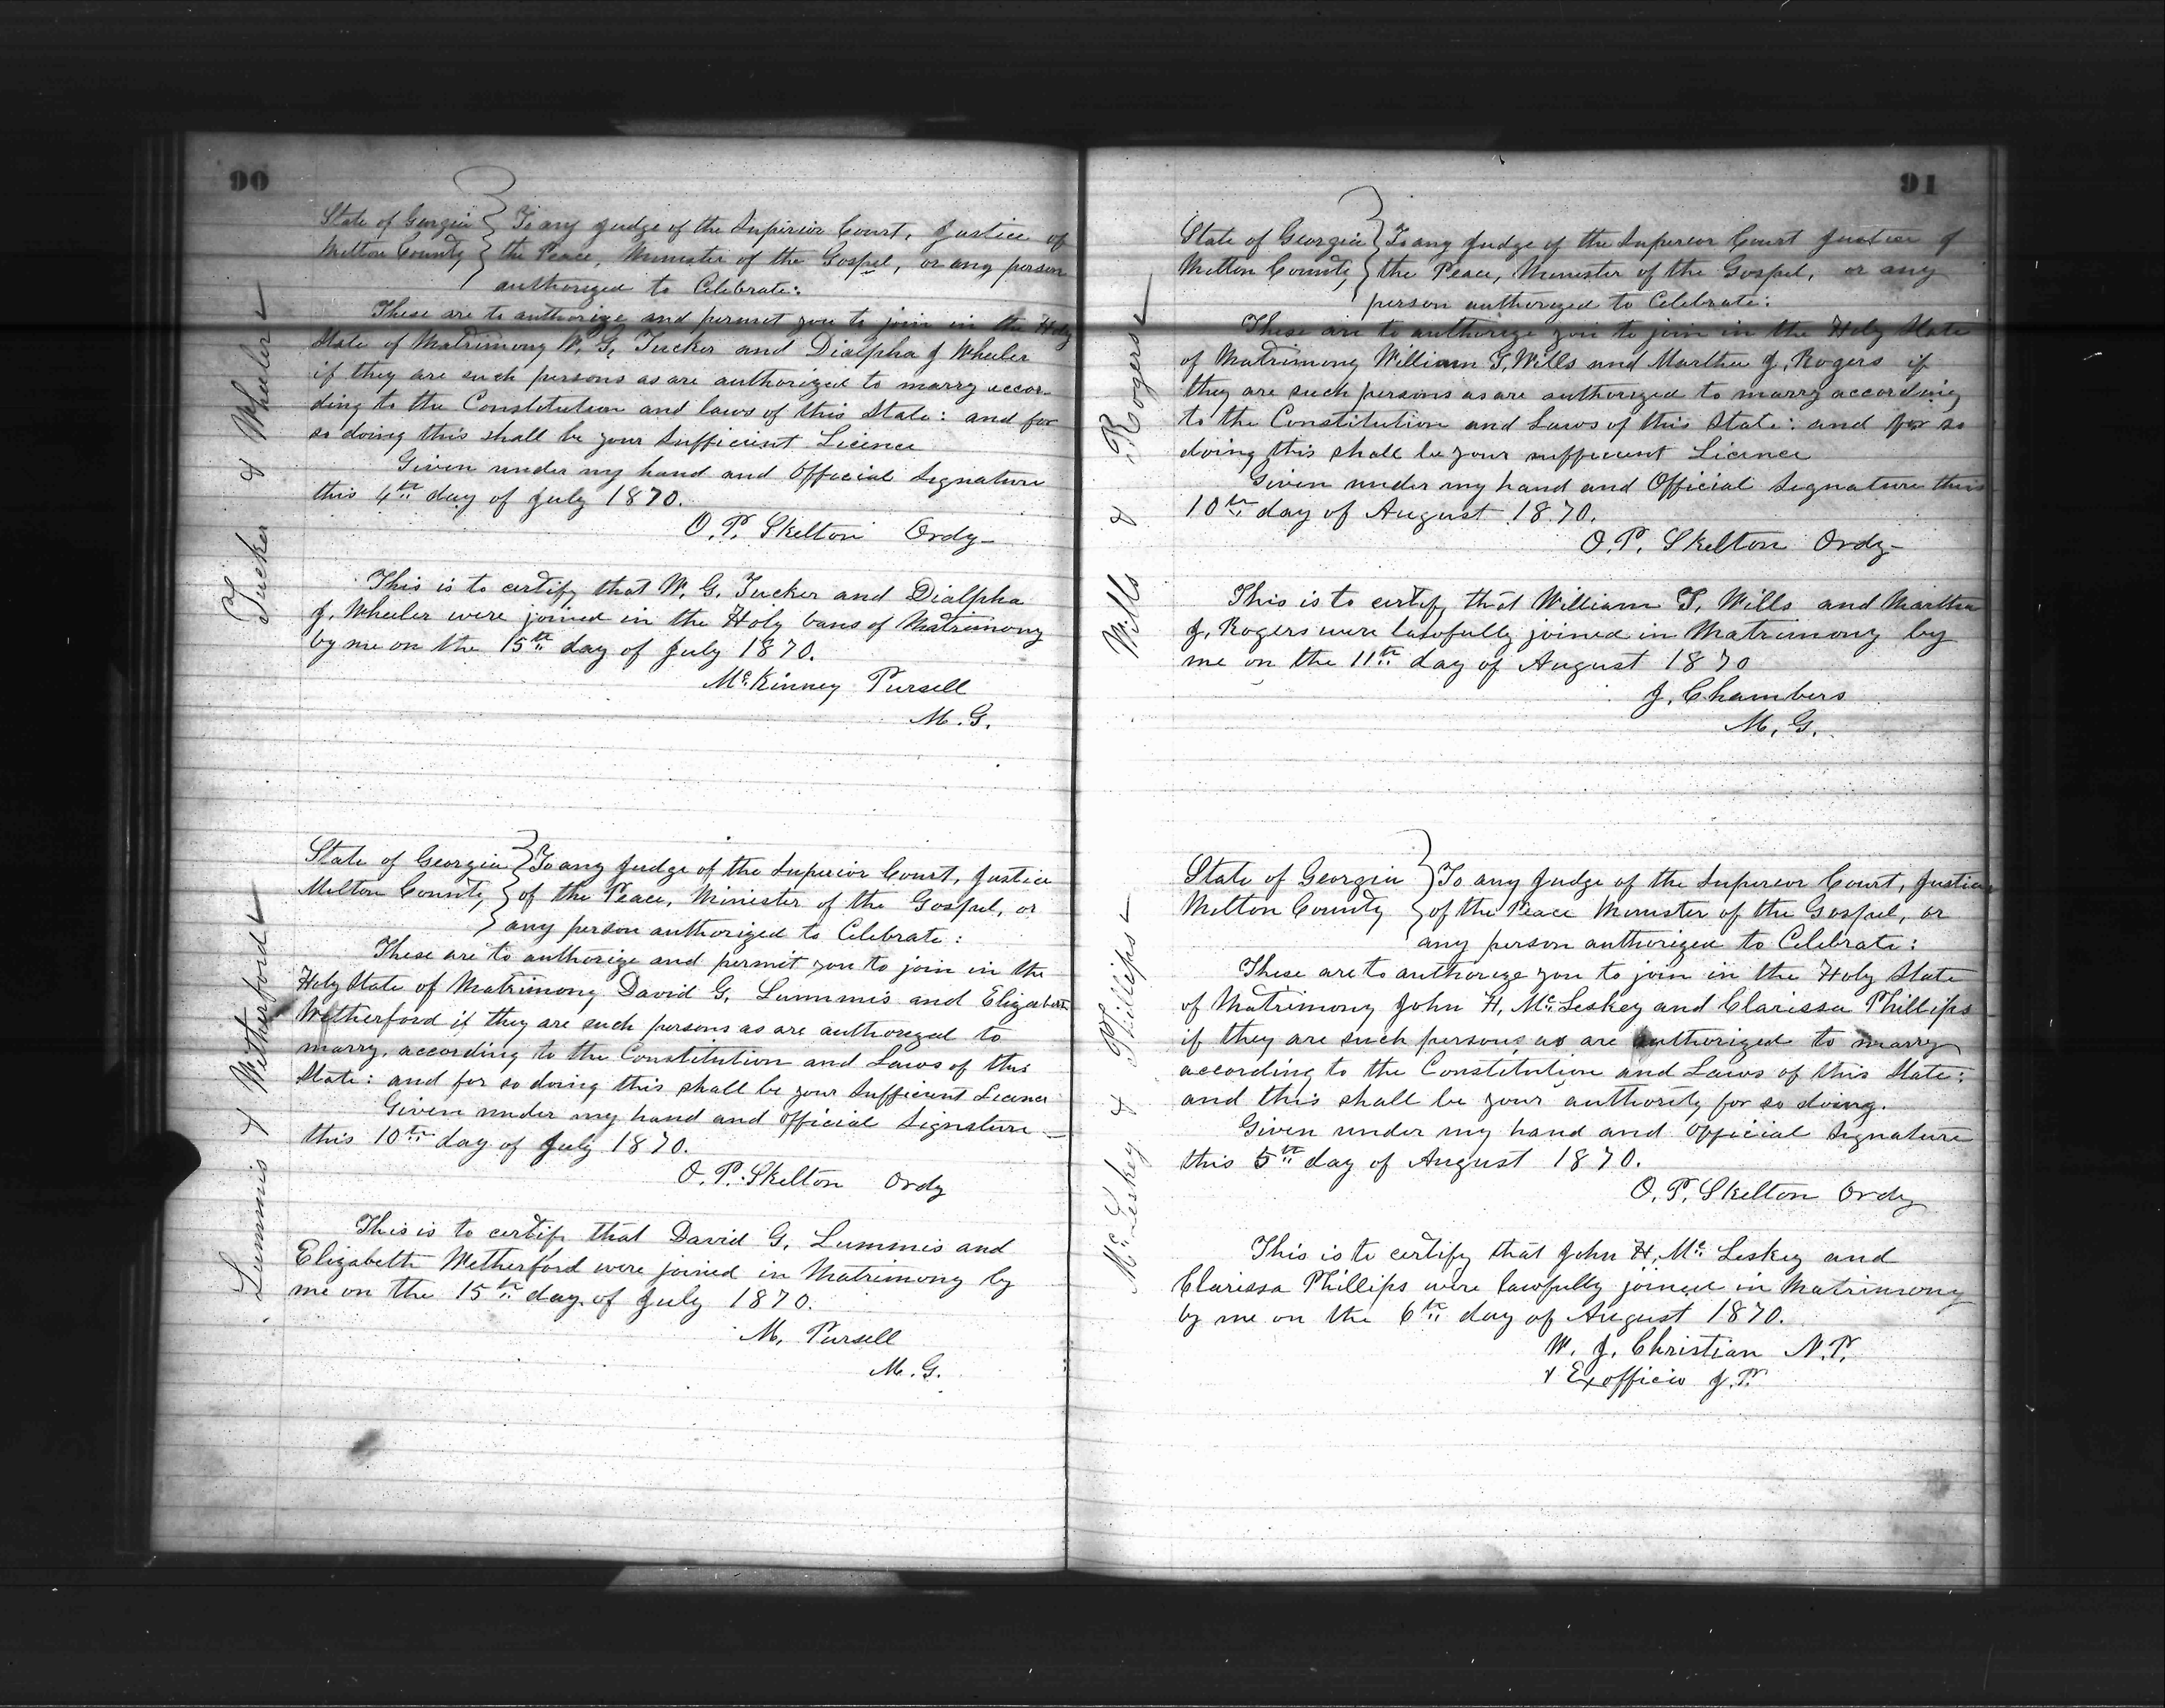 90
Tucker & Wheeler
State of Georgia } To any Judge of the Superior Court, Justice of
Milton County } the Peace, Minister of the Gospel, or any person
authorized to Celebrate:
These are to authorize and permit you to join in the Holy
State of Matrimony W. G. Tucker and Dialpha J Wheeler
if they are such persons as are authorized to marry accor-
ding to the Constitution and laws of this State: and for
so doing this shall be your Sufficient Licence
Given under my hand and Official Signature
this 4th day of July 1870.
O. P. Skelton Ordy
This is to certify that W. G. Tucker and Dialpha
J. Wheeler were joined in the Holy bans of Matrimony
by me on the 15th day of July 1870.
McKinney Pursell
M. G.
Lummis & Witherford
State of Georgia } To any Judge of the Superior Court, Justice
Milton County } of the Peace, Minister of the Gospel, or
} any person authorized to Celebrate:
These are to authorize and permit you to join in the
Holy State of Matrimony David G. Lummis and Elizabeth
Wetherford if they are such persons as are authorized to
marry, according to the Constitution and Laws of this
State: and for so doing this shall be your Sufficient Licence
Given under my hand and official Signature
this 10th day of July 1870.
O. P. Skelton Ordy
This is to certify that David G. Lummis and
Elizabeth Wetherford were joined in Matrimony by
me on the 15th day of July 1870.
M. Pursell
M. G.
91
Wills & Rogers
State of Georgia } To any Judge of the Superior Court Justice of
Milton County } the Peace, Minister of the Gospel, or any
person authorized to Celebrate:
These are to authorize you to join in the Holy State
of Matrimony William T. Wills and Martha J. Rogers if
they are such persons as are authorized to marry according
to the Constitution and Laws of this State: and for so
doing this shall be your sufficient Licence
Given under my hand and Official Signature this
10th day of August 1870.
O. P. Skelton Ordy
This is to certify that William T. Wills and Martha
J. Rogers were lawfully joined in Matrimony by
me on the 11th day of August 1870
J. Chambers
M. G.
McLeskey & Phillips
State of Georgia } To any Judge of the Superior Court, Justice
Milton County } of the Peace Minister of the Gospel, or
any person authorized to Celebrate:
These are to authorize you to join in the Holy State
of Matrimony John H. McLeskey and Clarissa Phillips
if they are such persons as are authorized to marry
according to the Constitution and Laws of this State:
and this shall be your authority for so doing.
Given under my hand and Official Signature
this 5th day of August 1870.
O. P. Skelton Ordy
This is to certify that John H. McLeskey and
Clarissa Phillips were lawfully joined in Matrimony
by me on the 6th day of August 1870.
W. J. Christian N. P.
& Exofficio J. P.